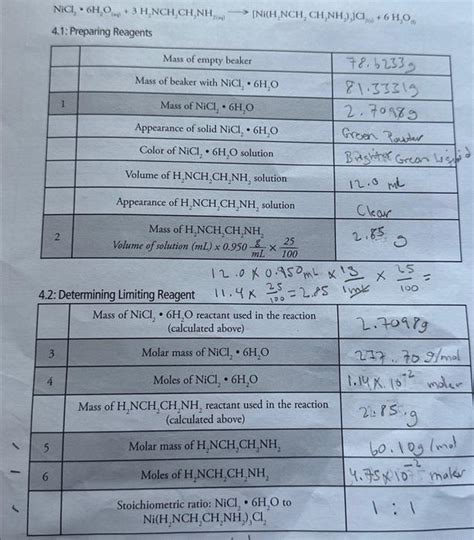 NiCl₂ • 6H₂O(aq) + 3 H₂NCH₂CH₂NH₂(aq) ⟶ [Ni(H₂NCH₂ CH₂NH₂)₃]Cl₂(s) + 6 H₂O(l)
4.1: Preparing Reagents
Mass of empty beaker 78.6233g
Mass of beaker with NiCl₂ • 6H₂O 81.3331g
1 Mass of NiCl₂ • 6H₂O 2.7098g
Appearance of solid NiCl₂ • 6H₂O Green Powder
Color of NiCl₂ • 6H₂O solution Brighter Green Liquid
Volume of H₂NCH₂CH₂NH₂ solution 12.0 mL
Appearance of H₂NCH₂CH₂NH₂ solution Clear
2 Mass of H₂NCH₂CH₂NH₂ 2.85 g
Volume of solution (mL) x 0.950 g/mL × 25/100
12.0 x 0.950mL x 1g/1mL x 25/100 =
11.4 x 25/100 = 2.85
4.2: Determining Limiting Reagent
Mass of NiCl₂ • 6H₂O reactant used in the reaction 2.7098g
(calculated above)
3 Molar mass of NiCl₂ • 6H₂O 237.70g/mol
4 Moles of NiCl₂ • 6H₂O 1.14 x 10⁻² moles
Mass of H₂NCH₂CH₂NH₂ reactant used in the reaction 2.85.g
(calculated above)
5 Molar mass of H₂NCH₂CH₂NH₂ 60.10g/mol
6 Moles of H₂NCH₂CH₂NH₂ 4.75x10⁻² moles
Stoichiometric ratio: NiCl₂ • 6H₂O to 1:1
Ni(H₂NCH₂CH₂NH₂)₃Cl₂